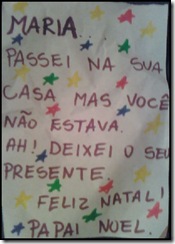 MARIA.
PASSEI NA SUA
CASA MAS VOCÊ
NÃO ESTAVA.
AH! DEIXEI O SEU
PRESENTE.
FELIZ NATAL!
PAPAI NOEL.